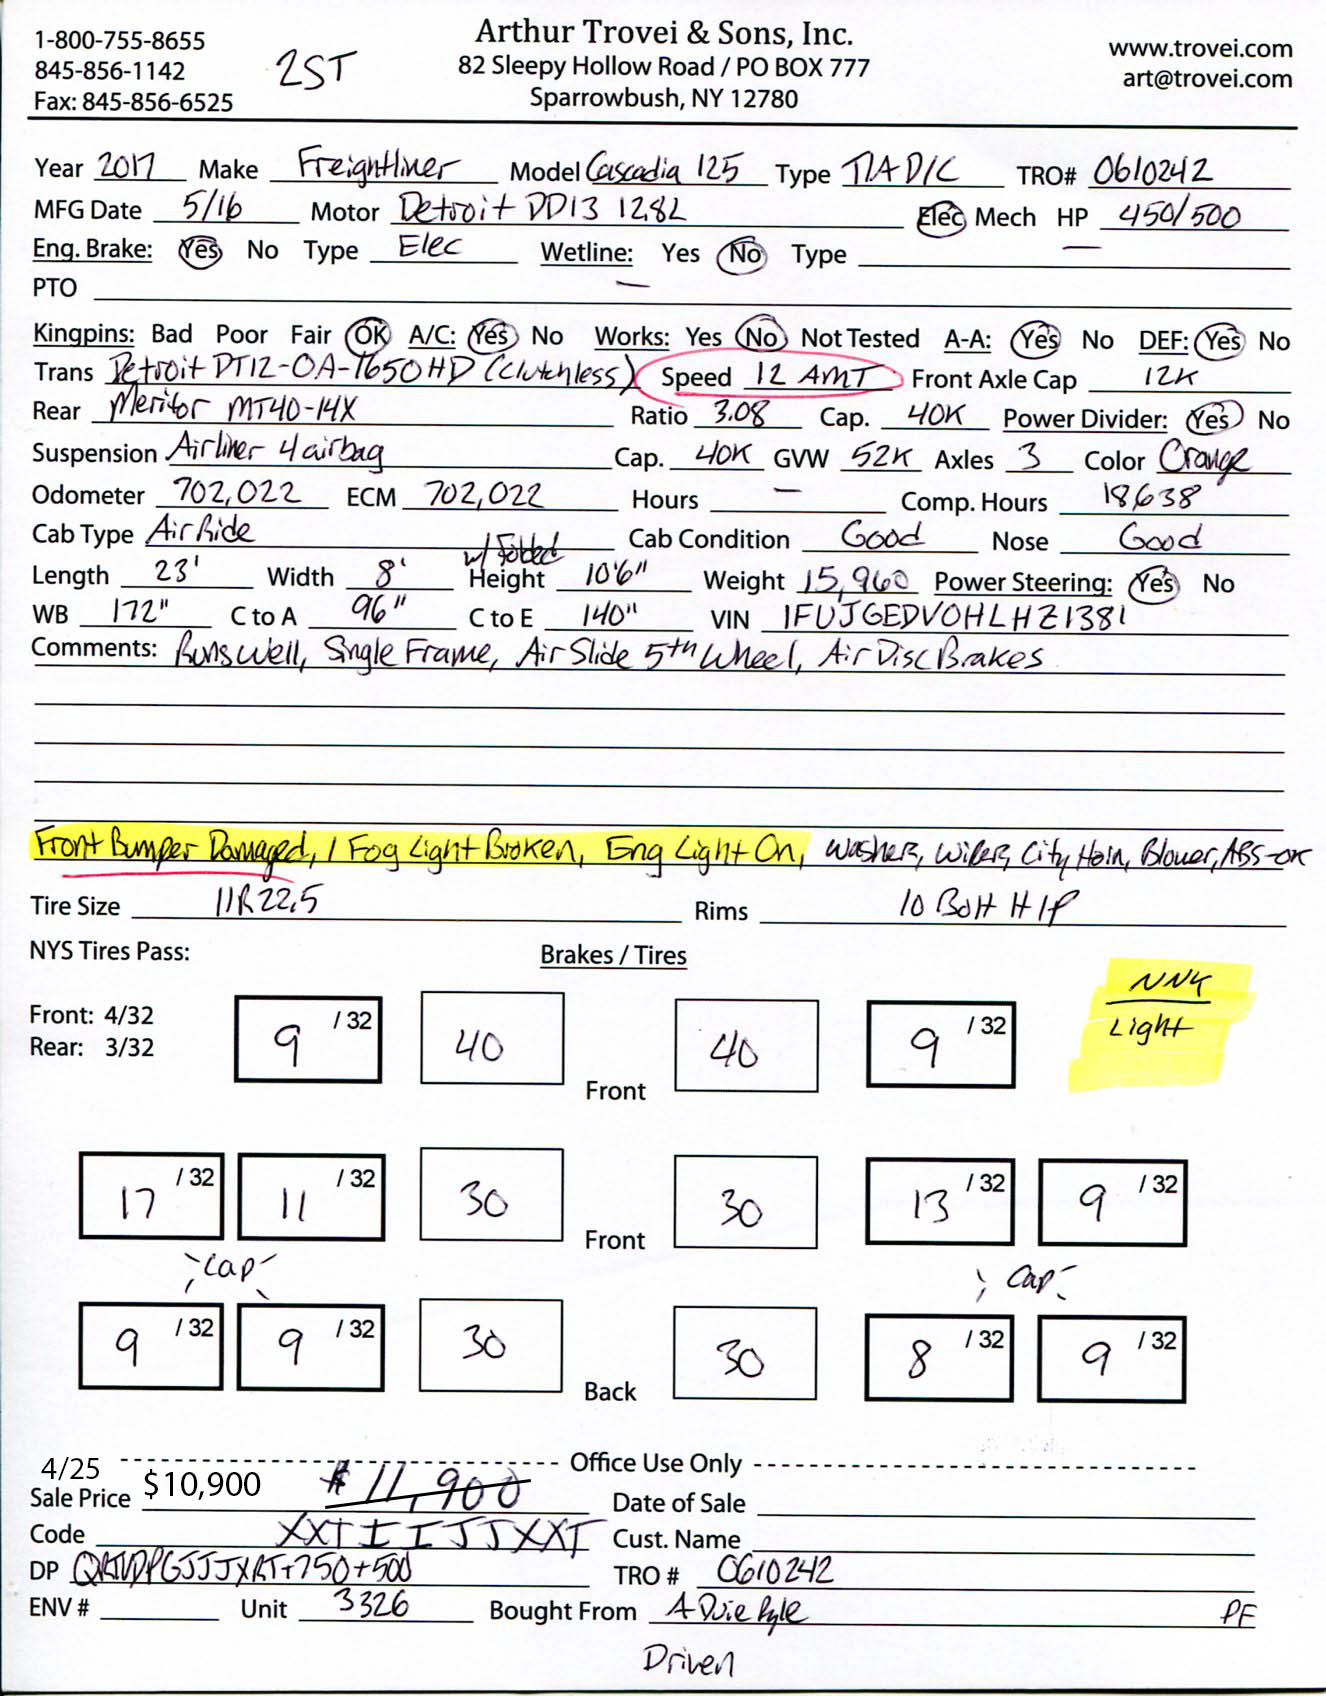 1-800-755-8655
845-856-1142
Fax: 845-856-6525
2ST
Arthur Trovei & Sons, Inc.
82 Sleepy Hollow Road / PO BOX 777
Sparrowbush, NY 12780
www.trovei.com
art@trovei.com
Year 2017 Make Freightliner Model Cascadia 125 Type T/A D/C TRO# 0610242
MFG Date 5/16 Motor Detroit DD13 12.8L Elec Mech HP 450/500
Eng. Brake: Yes No Type Elec Wetline: Yes No Type
PTO
Kingpins: Bad Poor Fair OK A/C: Yes No Works: Yes No Not Tested A-A: Yes No DEF: Yes No
Trans Detroit DT12-OA-1650HD (Clutchless) Speed 12 AMT Front Axle Cap 12K
Rear Meritor MT40-14X Ratio 3.08 Cap. 40K Power Divider: Yes No
Suspension Airliner 4 airbag Cap. 40K GVW 52K Axles 3 Color Orange
Odometer 702,022 ECM 702,022 Hours — Comp. Hours 18,638
Cab Type Air Ride Cab Condition Good Nose Good
w/ Folded
Length 23' Width 8' Height 10'6" Weight 15,960 Power Steering: Yes No
WB 172" C to A 96" C to E 140" VIN 1FUJGEDV0HLHZ1381
Comments: Runs Well, Single Frame, Air Slide 5th Wheel, Air Disc Brakes
Front Bumper Damaged, 1 Fog Light Broken, Eng Light On, Washers, Wipers, City Horn, Blower, ABS-OK
Tire Size 11R22.5 Rims 10 Bolt H/P
NYS Tires Pass: Brakes / Tires
NNY
Light
Front: 4/32
Rear: 3/32
9 /32 40 40 9 /32
Front
17 /32 11 /32 30 30 13 /32 9 /32
Front
Cap Cap
9 /32 9 /32 30 30 8 /32 9 /32
Back
4/25 Office Use Only
Sale Price $10,900 $11,900 Date of Sale
Code XXTIIJJXXT Cust. Name
DP TRO # 0610242
ENV # Unit 3326 Bought From A Duie Pyle PF
Driven